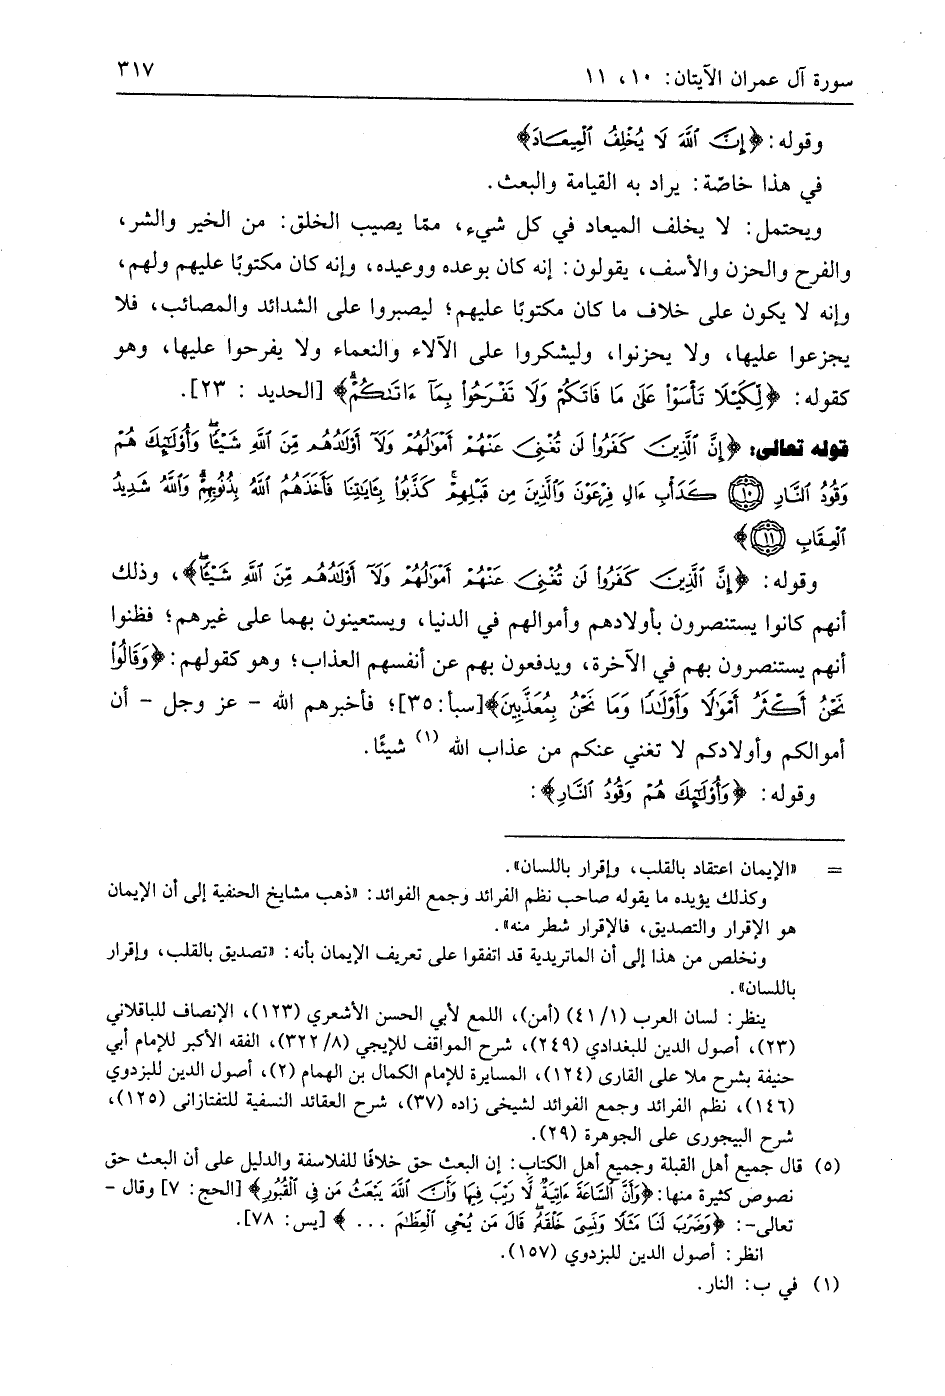 سورة آل عمران الآيتان: ١٠، ١١
٣١٧
وقوله: ﴿إِنَّ ٱللَّهَ لَا يُخْلِفُ ٱلْمِيعَادَ﴾
في هذا خاصّة: يراد به القيامة والبعث.
ويحتمل: لا يخلف الميعاد في كل شيء، ممّا يصيب الخلق: من الخير والشر،
والفرح والحزن والأسف، يقولون: إنه كان بوعده ووعيده، وإنه كان مكتوبًا عليهم ولهم،
وإنه لا يكون على خلاف ما كان مكتوبًا عليهم؛ ليصبروا على الشدائد والمصائب، فلا
يجزعوا عليها، ولا يحزنوا، وليشكروا على الآلاء والنعماء ولا يفرحوا عليها، وهو
كقوله: ﴿لِّكَيْلَا تَأْسَوْا۟ عَلَىٰ مَا فَاتَكُمْ وَلَا تَفْرَحُوا۟ بِمَآ ءَاتَىٰكُمْ﴾ [الحديد : ٢٣].
قوله تعالى: ﴿إِنَّ ٱلَّذِينَ كَفَرُوا۟ لَن تُغْنِىَ عَنْهُمْ أَمْوَٰلُهُمْ وَلَآ أَوْلَٰدُهُم مِّنَ ٱللَّهِ شَيْـًٔا ۖ وَأُو۟لَٰٓئِكَ هُمْ
وَقُودُ ٱلنَّارِ (١٠) كَدَأْبِ ءَالِ فِرْعَوْنَ وَٱلَّذِينَ مِن قَبْلِهِمْ ۚ كَذَّبُوا۟ بِـَٔايَٰتِنَا فَأَخَذَهُمُ ٱللَّهُ بِذُنُوبِهِمْ ۗ وَٱللَّهُ شَدِيدُ
ٱلْعِقَابِ (١١)﴾
وقوله: ﴿إِنَّ ٱلَّذِينَ كَفَرُوا۟ لَن تُغْنِىَ عَنْهُمْ أَمْوَٰلُهُمْ وَلَآ أَوْلَٰدُهُم مِّنَ ٱللَّهِ شَيْـًٔا ۖ﴾، وذلك
أنهم كانوا يستنصرون بأولادهم وأموالهم في الدنيا، ويستعينون بهما على غيرهم؛ فظنوا
أنهم يستنصرون بهم في الآخرة، ويدفعون بهم عن أنفسهم العذاب؛ وهو كقولهم: ﴿وَقَالُوا۟
نَحْنُ أَكْثَرُ أَمْوَٰلًا وَأَوْلَٰدًا وَمَا نَحْنُ بِمُعَذَّبِينَ﴾[سبأ: ٣٥]؛ فأخبرهم الله - عز وجل - أن
أموالكم وأولادكم لا تغني عنكم من عذاب الله (١) شيئًا.
وقوله: ﴿وَأُو۟لَٰٓئِكَ هُمْ وَقُودُ ٱلنَّارِ﴾:
= «الإيمان اعتقاد بالقلب، وإقرار باللسان».
وكذلك يؤيده ما يقوله صاحب نظم الفرائد وجمع الفوائد: «ذهب مشايخ الحنفية إلى أن الإيمان
هو الإقرار والتصديق، فالإقرار شطر منه».
ونخلص من هذا إلى أن الماتريدية قد اتفقوا على تعريف الإيمان بأنه: «تصديق بالقلب، وإقرار
باللسان».
ينظر: لسان العرب (٤١/١) (أمن)، اللمع لأبي الحسن الأشعري (١٢٣)، الإنصاف للباقلاني
(٢٣)، أصول الدين للبغدادي (٢٤٩)، شرح المواقف للإيجي (٣٢٢/٨)، الفقه الأكبر للإمام أبي
حنيفة بشرح ملا على القارى (١٢٤)، المسايرة للإمام الكمال بن الهمام (٢)، أصول الدين للبزدوي
(١٤٦)، نظم الفرائد وجمع الفوائد لشيخى زاده (٣٧)، شرح العقائد النسفية للتفتازانى (١٢٥)،
شرح البيجورى على الجوهرة (٢٩).
(٥) قال جميع أهل القبلة وجميع أهل الكتاب: إن البعث حق خلافًا للفلاسفة والدليل على أن البعث حق
نصوص كثيرة منها: ﴿وَأَنَّ ٱلسَّاعَةَ ءَاتِيَةٌ لَّا رَيْبَ فِيهَا وَأَنَّ ٱللَّهَ يَبْعَثُ مَن فِى ٱلْقُبُورِ﴾ [الحج: ٧] وقال -
تعالى-: ﴿وَضَرَبَ لَنَا مَثَلًا وَنَسِىَ خَلْقَهُۥ ۖ قَالَ مَن يُحْىِ ٱلْعِظَٰمَ ... ﴾ [يس: ٧٨].
انظر: أصول الدين للبزدوي (١٥٧).
(١) في ب: النار.